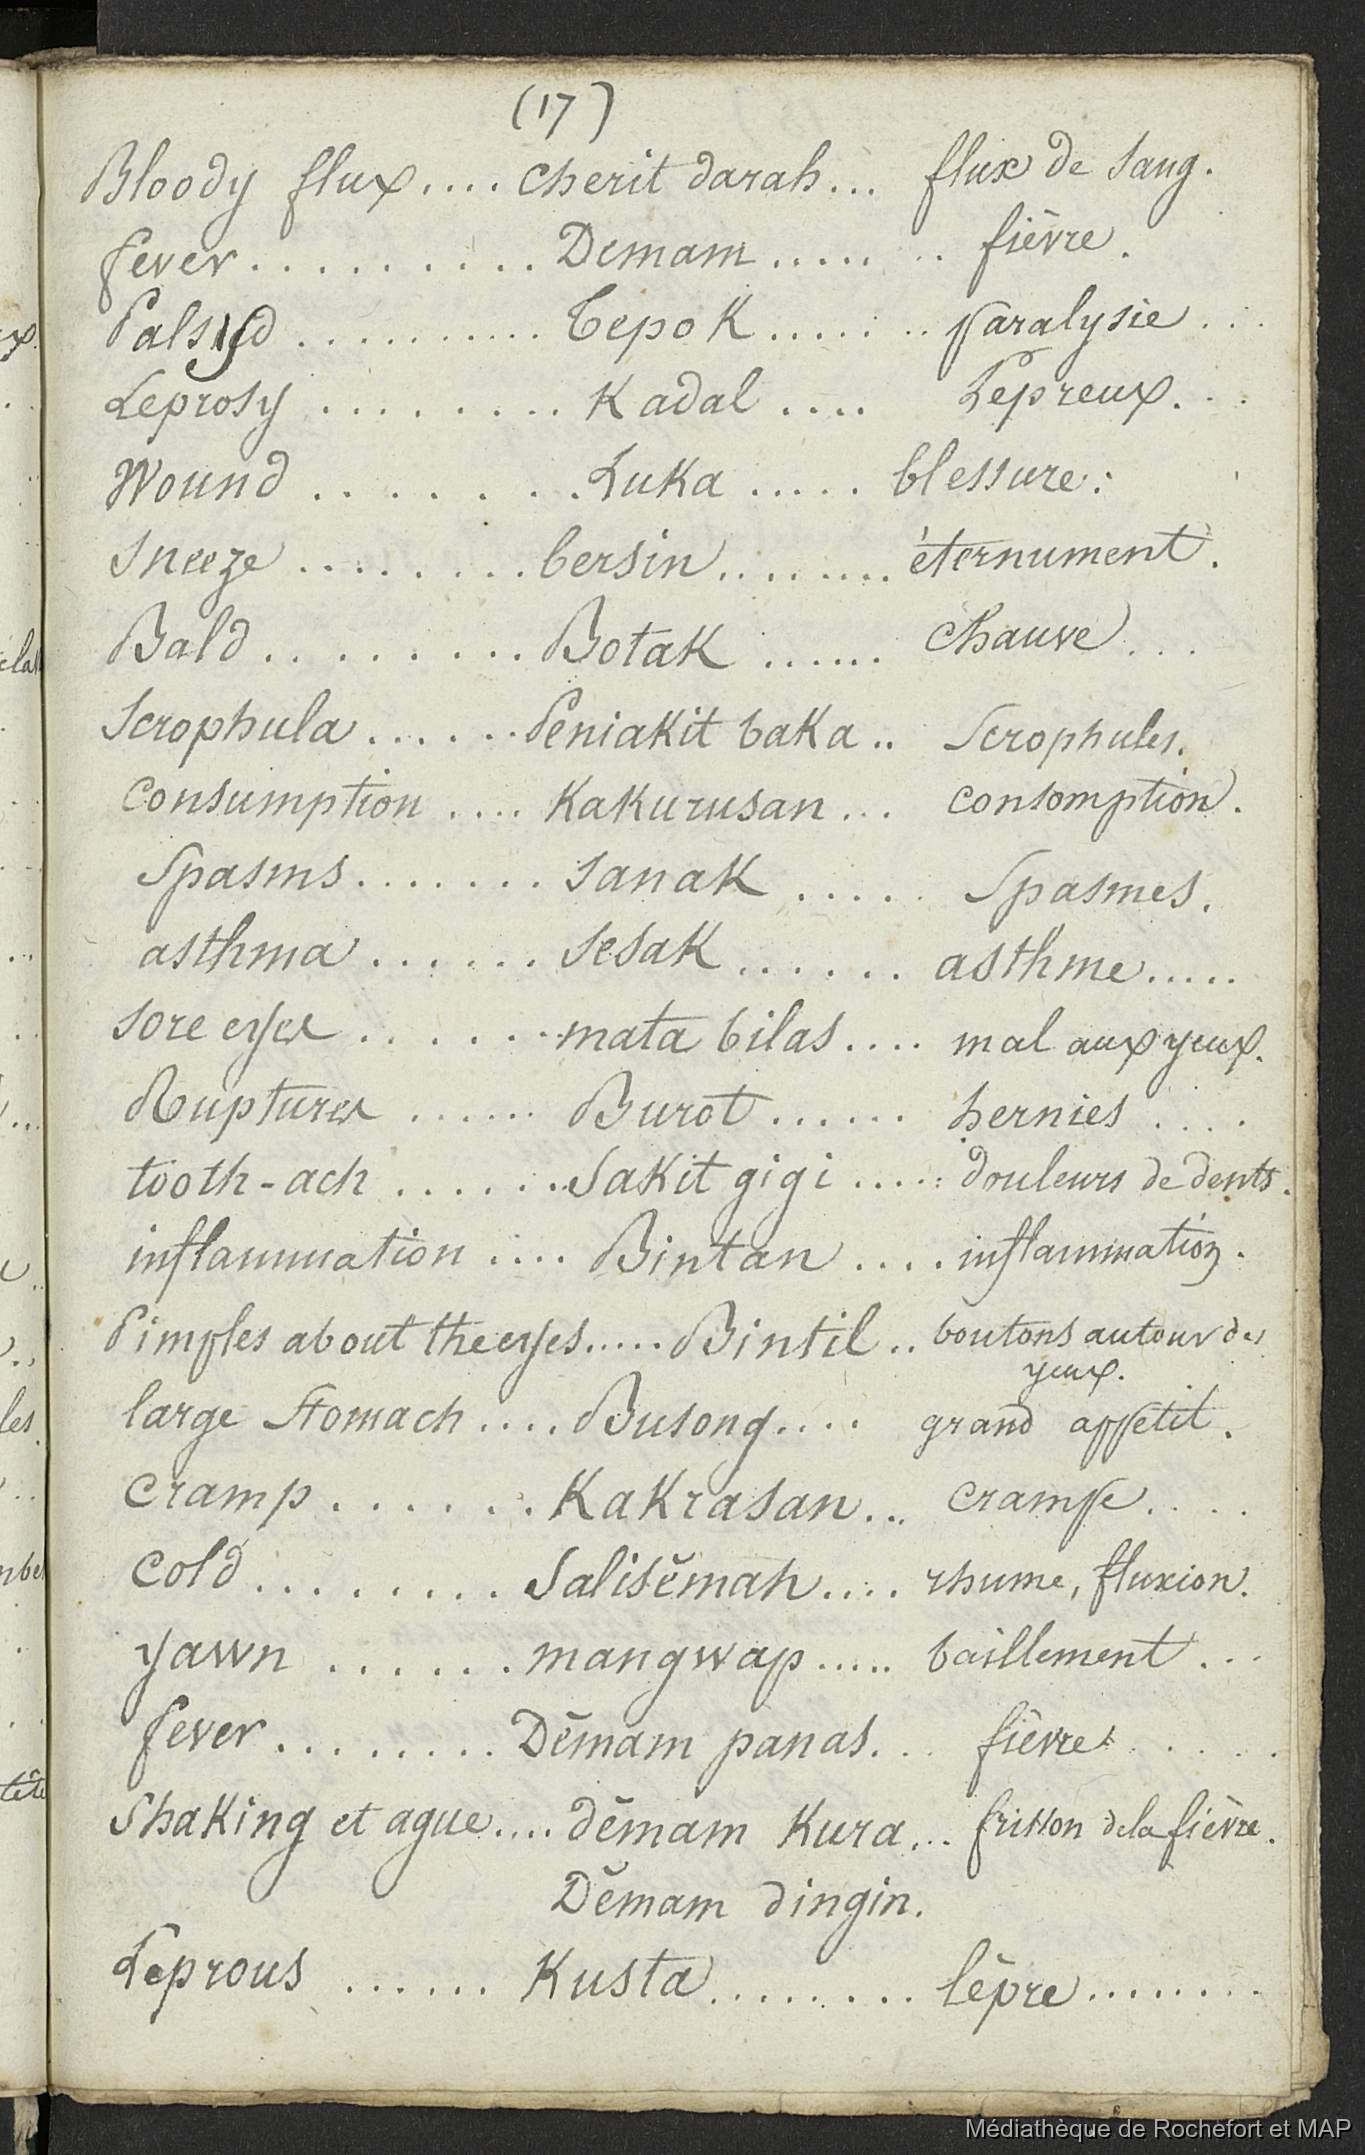 (17)
Bloody flux.... cherit darah... flux de sang.
fever.......... Demam....... fièvre.
Palsyd........... Tepok....... paralysie...
Leprosy......... Kadal.... Lepreux...
Wound........ Luka..... blessure.
Sneeze........ bersin........ éternument.
Bald......... Botak...... chauve...
Scrophula...... Peniakit baka.. Scrophules.
consumption.... Kakurusan... consomption.
Spasms....... sanak..... Spasmes.
asthma...... sesak...... asthme.....
sore eyes...... mata bilas.... mal aux yeux.
Ruptures...... Burot...... hernies....
tooth-ach...... Sakit gigi..... douleurs de dents.
inflammation.... Bintan.... inflammation.
Pimples about the eyes..... Bintil.. boutons autour des
yeux.
large stomach.... Busong.... grand appetit.
cramp...... Kakrasan... crampe....
cold........ Salisĕmah.... rhume, fluxion.
yawn...... mangwap..... baillement...
fever........ Dĕmam panas... fièvre.....
Shaking et ague.... dĕmam Kura... frisson de la fièvre.
Dĕmam dingin.
Leprous...... Kusta........ lèpre........
ux
elah
mbe
les
tête
Médiathèque de Rochefort et MAP